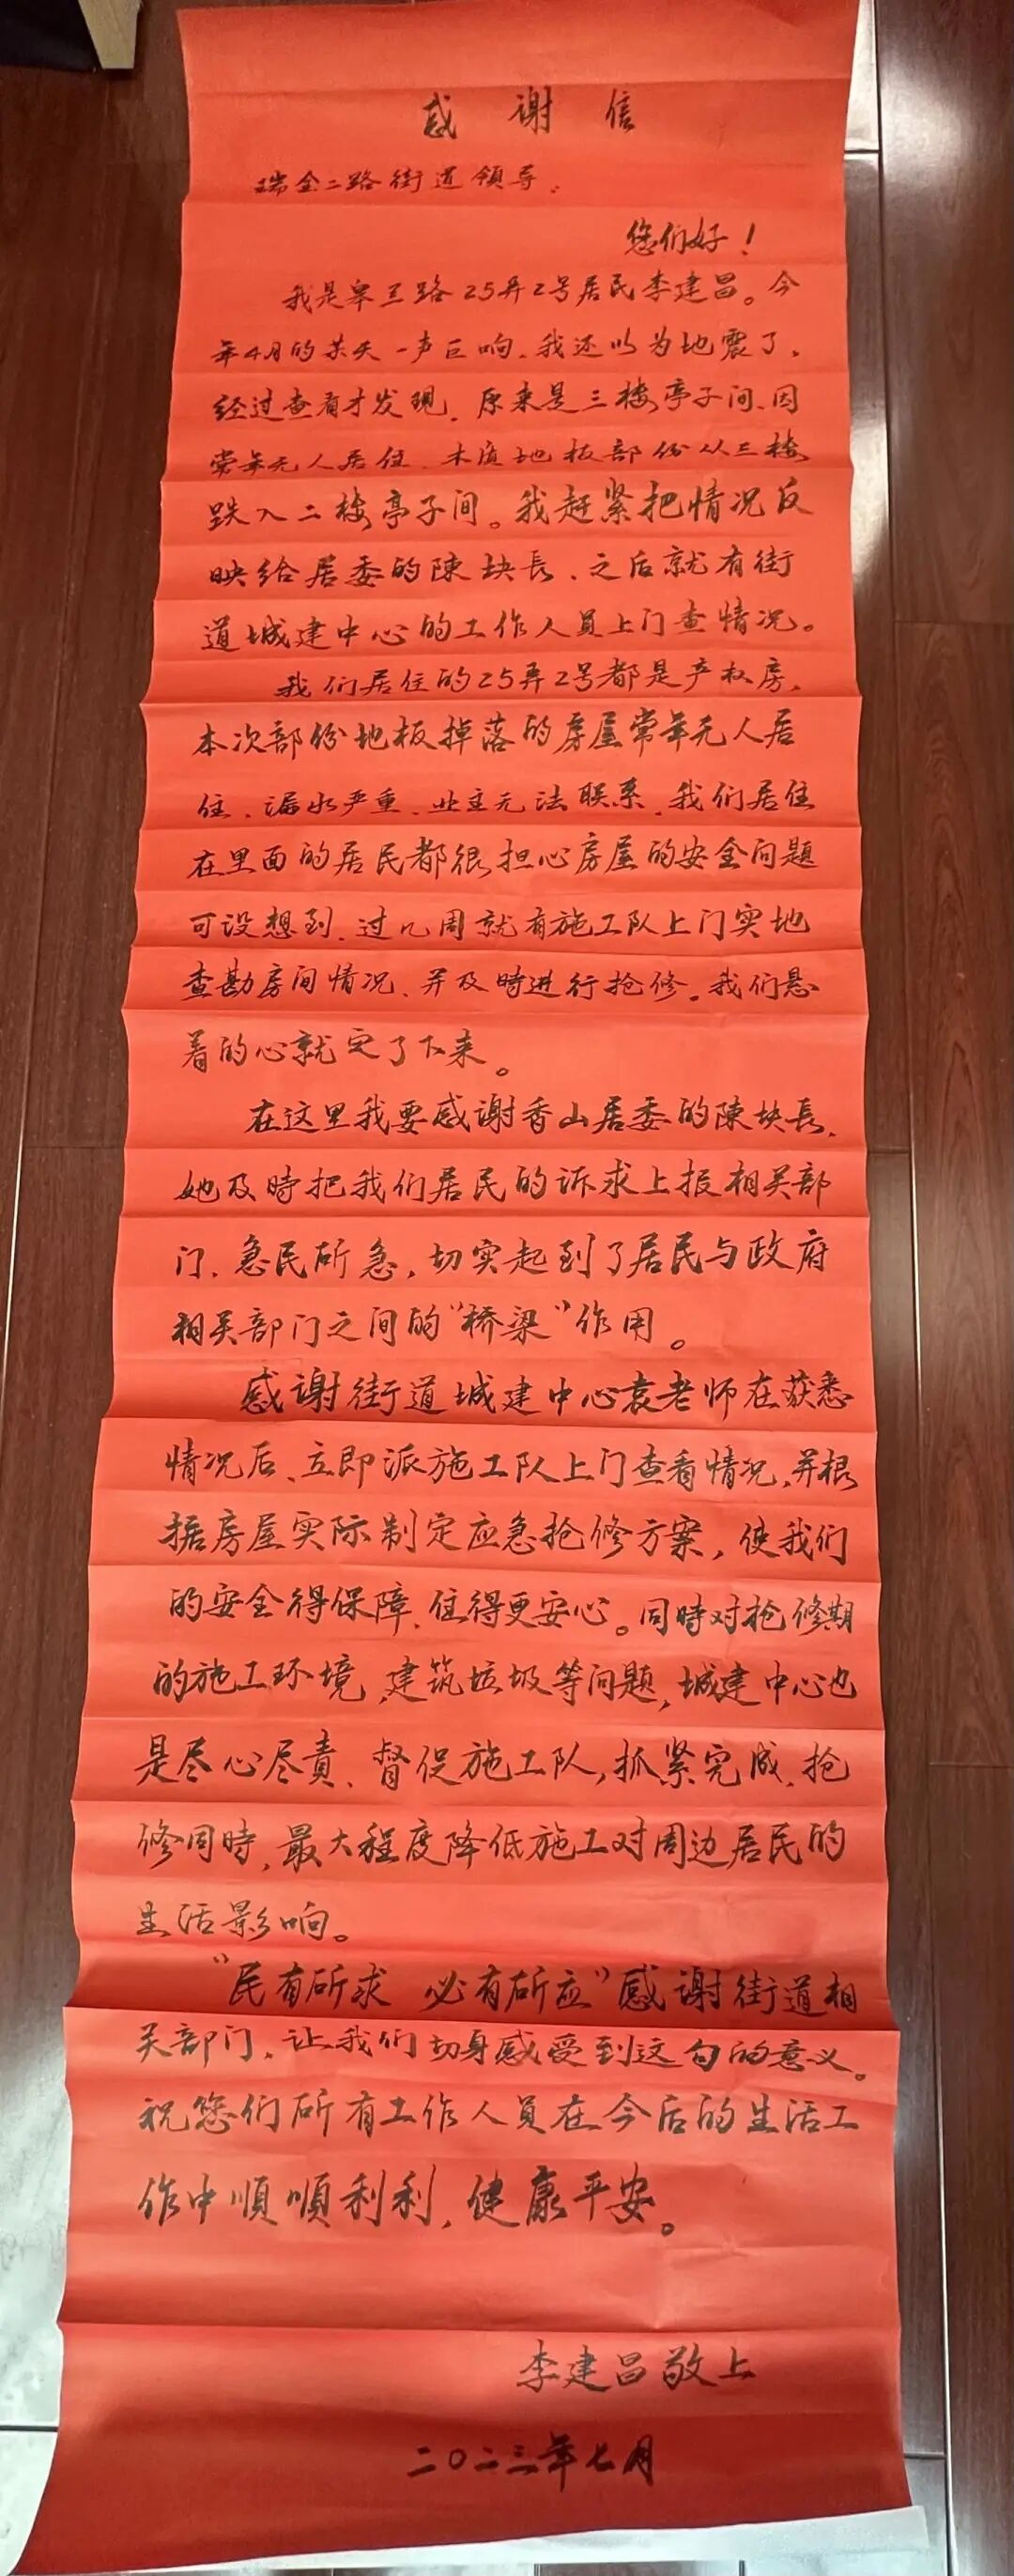 感谢信
瑞金二路街道领导：
您们好！
我是皋兰路25弄2号居民李建昌。今
年4月的某天一声巨响，我还以为地震了，
经过查看才发现，原来是三楼亭子间、因
常年无人居住，木质地板部份从三楼
跌入二楼亭子间。我赶紧把情况反
映给居委的陳块長，之后就有街
道城建中心的工作人员上门查情况。
我们居住的25弄2号都是产权房，
本次部份地板掉落的房屋常年无人居
住、漏水严重、业主无法联系，我们居住
在里面的居民都很担心房屋的安全问题
可没想到，过几周就有施工队上门实地
查勘房间情况、并及時进行抢修。我们悬
着的心就定了下来。
在这里我要感谢香山居委的陳块長，
她及時把我们居民的诉求上报相关部
门，急民所急，切实起到了居民与政府
相关部门之间的“桥梁”作用。
感谢街道城建中心袁老师在获悉
情况后、立即派施工队上门查看情况，并根
据房屋实际制定应急抢修方案，使我们
的安全得保障，住得更安心。同時对抢修期
的施工环境，建筑垃圾等问题，城建中心也
是尽心尽责、督促施工队，抓紧完成，抢
修同時，最大程度降低施工对周边居民的
生活影响。
“民有所求 必有所应”感谢街道相
关部门，让我们切身感受到这句的意义。
祝您们所有工作人員在今后的生活工
作中順順利利，健康平安。
李建昌敬上
二〇二三年七月